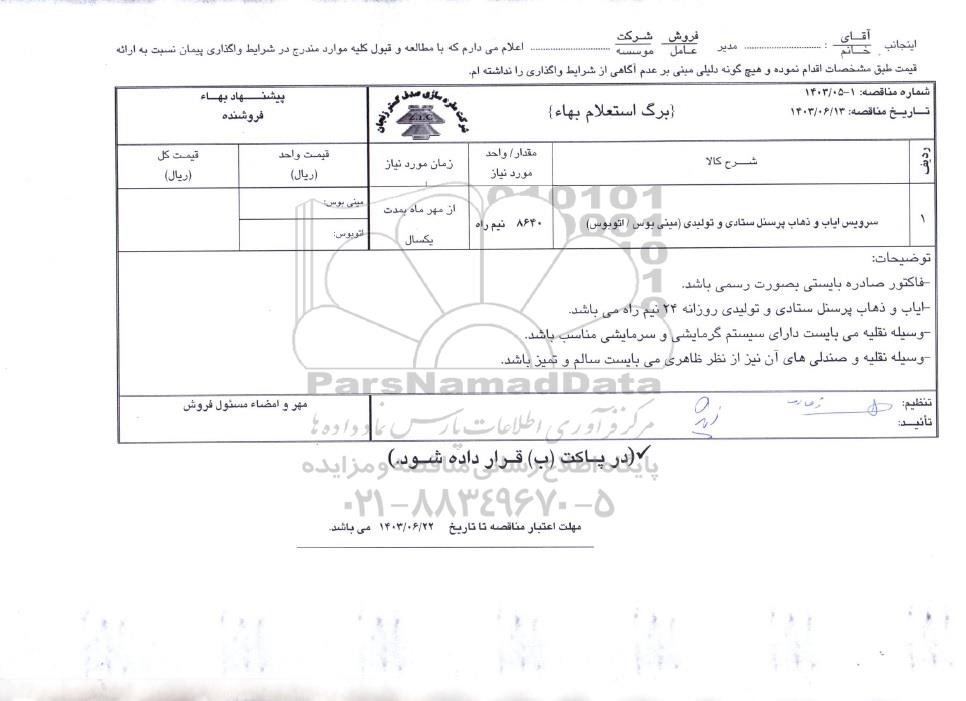 اینجانب آقای / خانم : .......................... مدیر فروش / عامل شرکت / موسسه .......................... اعلام می دارم که با مطالعه و قبول کلیه موارد مندرج در شرایط واگذاری پیمان نسبت به ارائه
قیمت طبق مشخصات اقدام نموده و هیچ گونه دلیلی مبنی بر عدم آگاهی از شرایط واگذاری را نداشته ام.
شماره مناقصه: ۱-۱۴۰۳/۰۵
تاریخ مناقصه: ۱۴۰۳/۰۶/۱۳
{برگ استعلام بهاء}
شرکت مقره سازی صدف گستر زنجان
Z.I.C
پیشنهاد بهاء
فروشنده
ردیف
شرح کالا
مقدار/ واحد
مورد نیاز
زمان مورد نیاز
قیمت واحد
(ریال)
قیمت کل
(ریال)
۱
سرویس ایاب و ذهاب پرسنل ستادی و تولیدی (مینی بوس / اتوبوس)
۸۶۴۰ نیم راه
از مهر ماه بمدت
یکسال
مینی بوس:
اتوبوس:
توضیحات:
-فاکتور صادره بایستی بصورت رسمی باشد.
-ایاب و ذهاب پرسنل ستادی و تولیدی روزانه ۲۴ نیم راه می باشد.
-وسیله نقلیه می بایست دارای سیستم گرمایشی و سرمایشی مناسب باشد.
-وسیله نقلیه و صندلی های آن نیز از نظر ظاهری می بایست سالم و تمیز باشد.
ParsNamadData
تنظیم:
تأئید:
مهر و امضاء مسئول فروش
مرکز فرآوری اطلاعات پارس نماد داده ها
✓(در پاکت (ب) قرار داده شود.)
پایگاه اطلاع رسانی مناقصه و مزایده
۰۲۱-۸۸۳۴۹۶۷۰-۵
مهلت اعتبار مناقصه تا تاریخ ۱۴۰۳/۰۶/۲۲ می باشد.